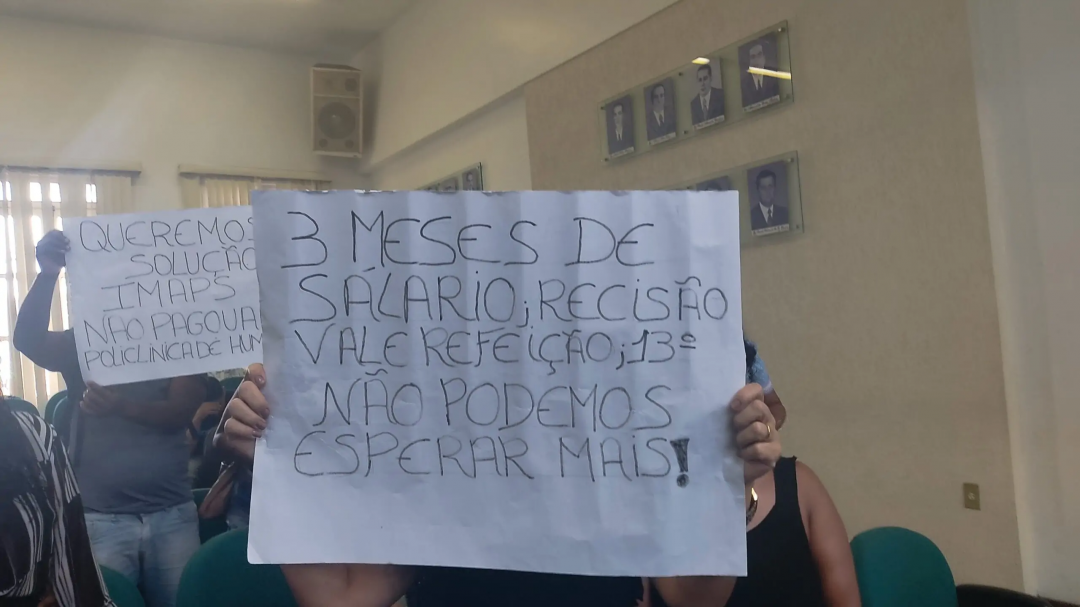 QUEREMOS
SOLUÇÃO
IMAPS
NÃO PAGOU A
POLICLINICA DE HUM
3 MESES DE
SÁLARIO; RECISÃO
VALE REFEIÇÃO; 13º
NÃO PODEMOS
ESPERAR MAIS!